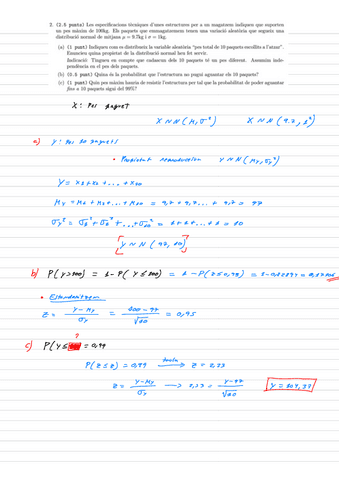 2. (2.5 punts) Les especificacions tècniques d'unes estructures per a un magatzem indiquen que suporten
un pes màxim de 100kg. Els paquets que emmagatzemem tenen una variació aleatòria que segueix una
distribució normal de mitjana μ = 9.7kg i σ = 1kg.
(a) (1 punt) Indiqueu com es distribueix la variable aleatòria "pes total de 10 paquets escollits a l'atzar".
Enuncieu quina propietat de la distribució normal heu fet servir.
Indicació: Tingueu en compte que cadascun dels 10 paquets té un pes diferent. Assumiu inde-
pendència en el pes dels paquets.
(b) (0.5 punt) Quina és la probabilitat que l'estructura no pugui aguantar els 10 paquets?
(c) (1 punt) Quin pes màxim hauria de resistir l'estructura per tal que la probabilitat de poder aguantar
fins a 10 paquets sigui del 99%?
X: Pes paquet
X ~ N(μ, σ²) X ~ N(9.7, 1²)
a) Y: Pes 10 paquets
• Propietat reproductiva Y ~ N(μy, σy²)
Y = X1 + X2 + ... + X10
μy = μ1 + μ2 + ... + μ10 = 9,7 + 9,7 ... + 9,7 = 97
σy² = σ1² + σ2² + ... + σ10² = 1 + 1 + ... + 1 = 10
[Y ~ N(97, 10)]
b) P(Y>100) = 1 - P(Y ≤ 100) = 1 - P(Z ≤ 0,95) =
• Estandaritzem
Z = (Y - μy) / σy = (100 - 97) / √10 = 0,95
c) P(Y ≤ ?) = 0,99
P(Z ≤ z) = 0,99 → z = 2,33
Z = (Y - μy) / σy → 2,33 = (Y - 97) / √10 Y = 104,37